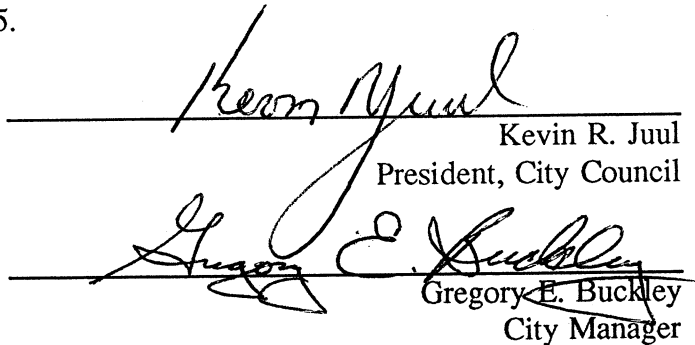 5.
Kevin Juul
Kevin R. Juul
President, City Council
Gregory E. Buckley
Gregory E. Buckley
City Manager